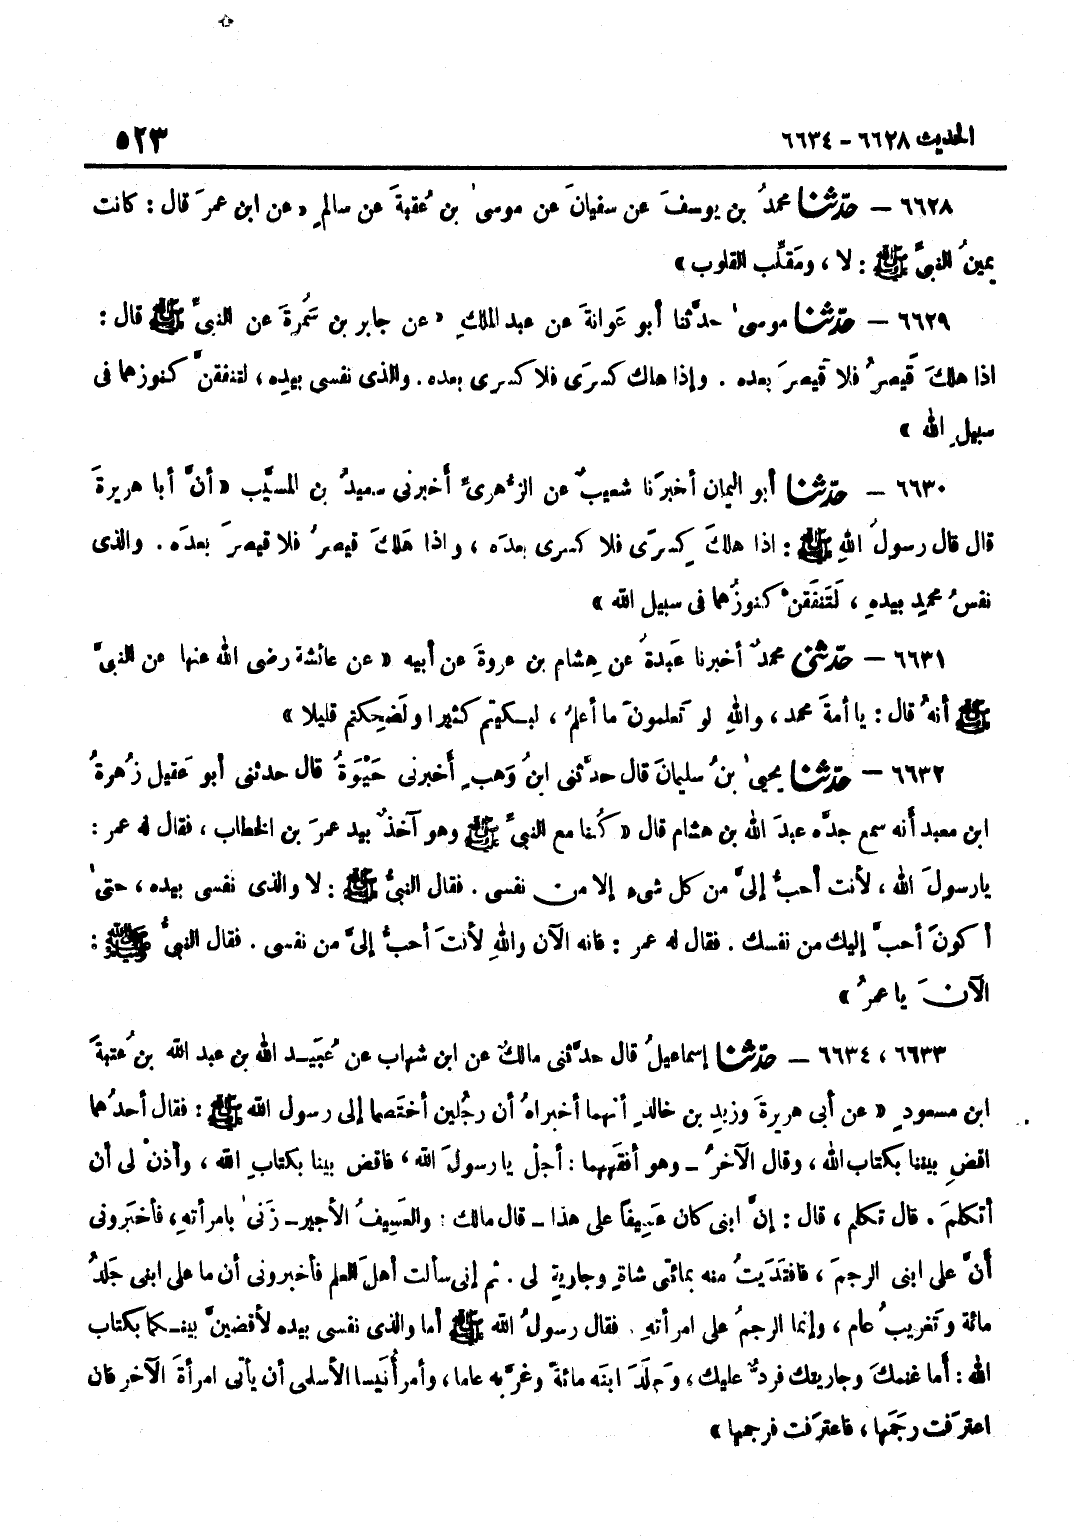 الحديث ٦٦٢٨ - ٦٦٣٤
٥٢٣
٦٦٢٨ – حدّثنا محمدُ بن يوسفَ عن سفيانَ عن موسىٰ بن عُقبةَ عن سالمٍ « عن ابن عمرَ قال : كانت
يمينُ النبىِّ ﷺ : لا ، ومُقلِّب القلوب »
٦٦٢٩ – حدّثنا موسىٰ حدَّثنا أبو عَوانةَ عن عبد الملكِ « عن جابر بن سَمُرةَ عن النبىِّ ﷺ قال :
اذا هلكَ قَيصرُ فلا قَيصرَ بعده . وإذا هلك كسرَى فلا كسرى بعده . والذى نفسى بيدِه ، لتنفقنَّ كنوزهما فى
سبيلِ الله »
٦٦٣٠ – حدّثنا أبو اليمان أخبرَنا شعيبٌ عن الزُّهرىِّ أخبرنى سعيدُ بن المسيَّب « أنَّ أبا هريرةَ
قال قال رسولُ اللهِ ﷺ : اذا هلكَ كِسرَى فلا كسرى بعدَه ، واذا هَلكَ قيصرُ فلا قيصرَ بعدَه . والذى
نفسُ محمدٍ بيدهِ ، لَتنفَقنَّ كنوزُهما فى سبيل الله »
٦٦٣١ – حدّثنى محمدٌ أخبرنا عَبدةُ عن هِشام بن عروةَ عن أبيه « عن عائشة رضى الله عنها عن النبىِّ
ﷺ أنهُ قال : يا أمةَ محمد ، واللهِ لو تَعلمونَ ما أعلمُ ، لبكيتم كثيرا ولَضَحِكتم قليلا »
٦٦٣٢ – حدّثنا يحيىٰ بنُ سليمانَ قال حدَّثنى ابنُ وَهبٍ أخبرنى حَيْوَةُ قال حدثنى أبو عَقيل زُهرةُ
ابن معبد أنه سمع جدَّه عبدَ الله بن هشام قال « كُنا مع النبىِّ ﷺ وهو آخذٌ بيد عمرَ بن الخطاب ، فقال له عمر :
يارسولَ الله ، لأنت أحبُّ إلىَّ من كل شىء إلا من نفسى . فقال النبىُّ ﷺ : لا والذى نفسى بيده ، حتىٰ
أكونَ أحبَّ إليك من نفسك . فقال له عمر : فانه الآن واللهِ لأنتَ أحبُّ إلىَّ من نفسى . فقال النبىُّ ﷺ :
الآنَ يا عمرُ »
٦٦٣٣ ، ٦٦٣٤ – حدّثنا إسماعيلُ قال حدَّثنى مالكٌ عن ابن شهاب عن عُبَيد الله بن عبد الله بن عُتبةَ
ابن مسعودٍ « عن أبى هريرةَ وزيدِ بن خالدٍ أنهما أخبراهُ أن رجُلين أختَصما إلى رسول الله ﷺ : فقال أحدُهما
اقضِ بيننا بكتاب الله ، وقال الآخرُ – وهو أفقَههما : أجلْ يا رسولَ الله ، فاقضِ بيننا بكتابِ الله ، وأذنْ لى أن
أتكلمَ . قال تكلم ، قال : إنَّ ابنى كان عَسِيفاً على هذا – قال مالك : والعَسِيفُ الأجير – زَنىٰ بامرأتهِ ، فأخبَرونى
أنَّ على ابنى الرجمَ ، فافتَدَيتُ منه بمائتى شاةٍ وجاريةٍ لى . ثم إنى سألت أهلَ العلم فأخبرونى أن ما على ابنى جَلدُ
مائة وتغريبُ عام ، وإنما الرجمُ على امرأتهِ . فقال رسولُ الله ﷺ أما والذى نفسى بيده لأقضينَّ بينكما بكتاب
الله : أما غنمكَ وجاريتك فردٌّ عليك ، وجلَدَ ابنَه مائةً وغرَّبه عاما ، وأمرَ أُنَيسا الأسلمى أن يأتى امرأةَ الآخر فان
اعترَفت رجَمَها ، فاعترَفت فرجمها »